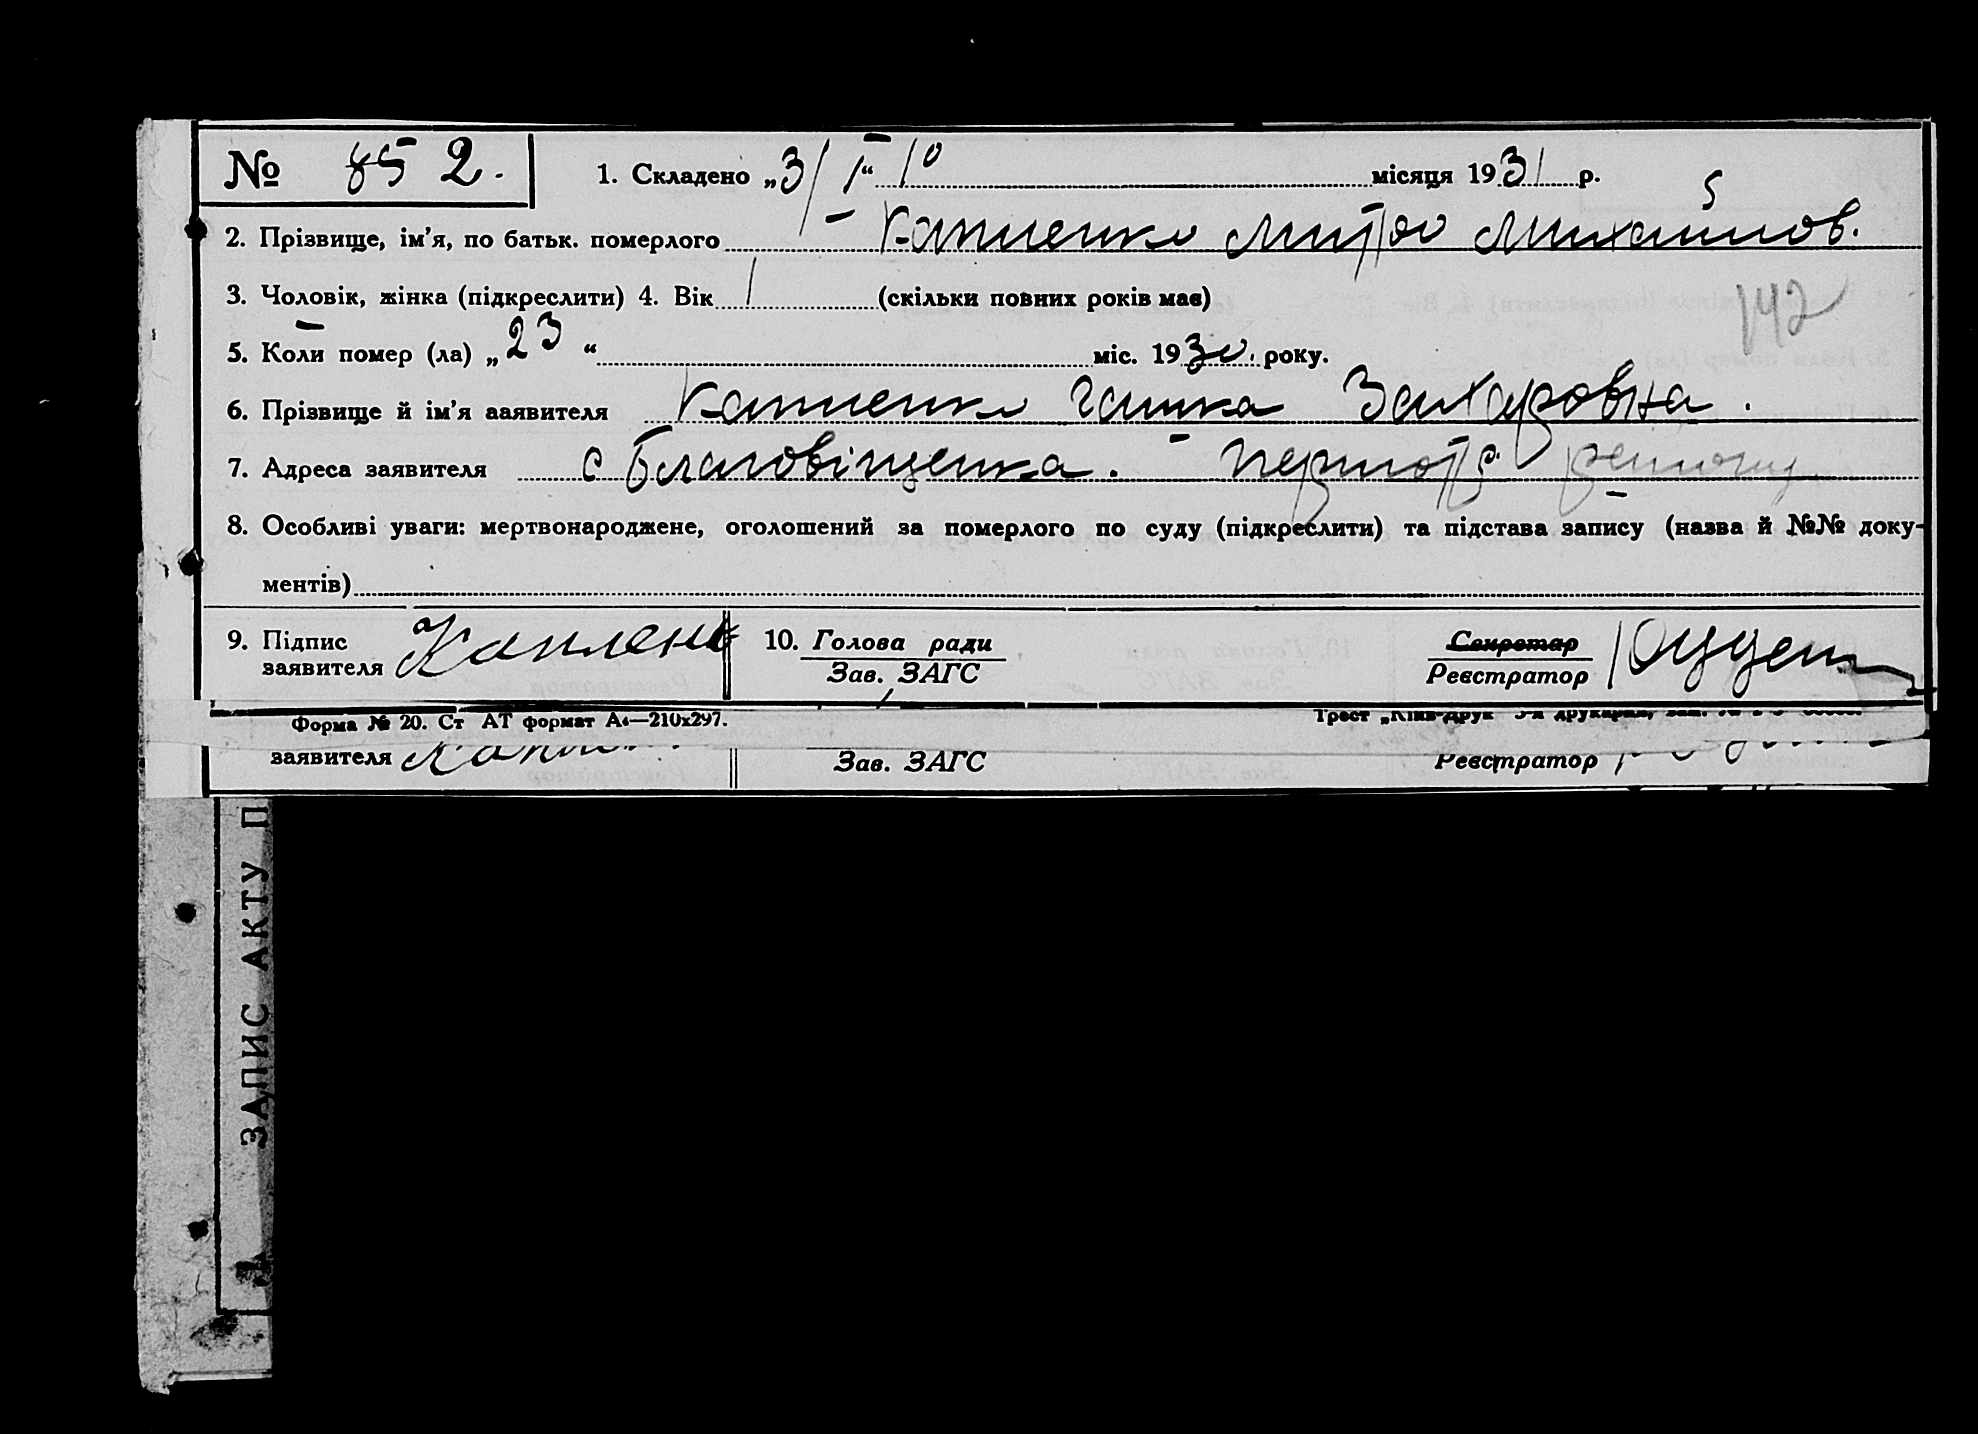 № 852. 1. Складено „3/I“ 10 місяця 1931 р.
2. Прізвище, ім'я, по батьк. померлого Капленко Митро Михайлов.
3. Чоловік, жінка (підкреслити) 4. Вік 1 (скільки повних років має)
142
5. Коли помер (ла) „23“ міс. 1930. року.
6. Прізвище й ім'я заявителя Капленко Ганка Захаровна.
7. Адреса заявителя с Благовіщенка.
8. Особливі уваги: мертвонароджене, оголошений за померлого по суду (підкреслити) та підстава запису (назва й №№ доку-
ментів)
9. Підпис заявителя Каплен 10. Голова ради Секретар
Зав. ЗАГС Реєстратор
Форма № 20. Ст АТ формат А4—210х297. Трест „Київ-Друк“
заявителя Зав. ЗАГС Реєстратор
ЗАПИС АКТУ П